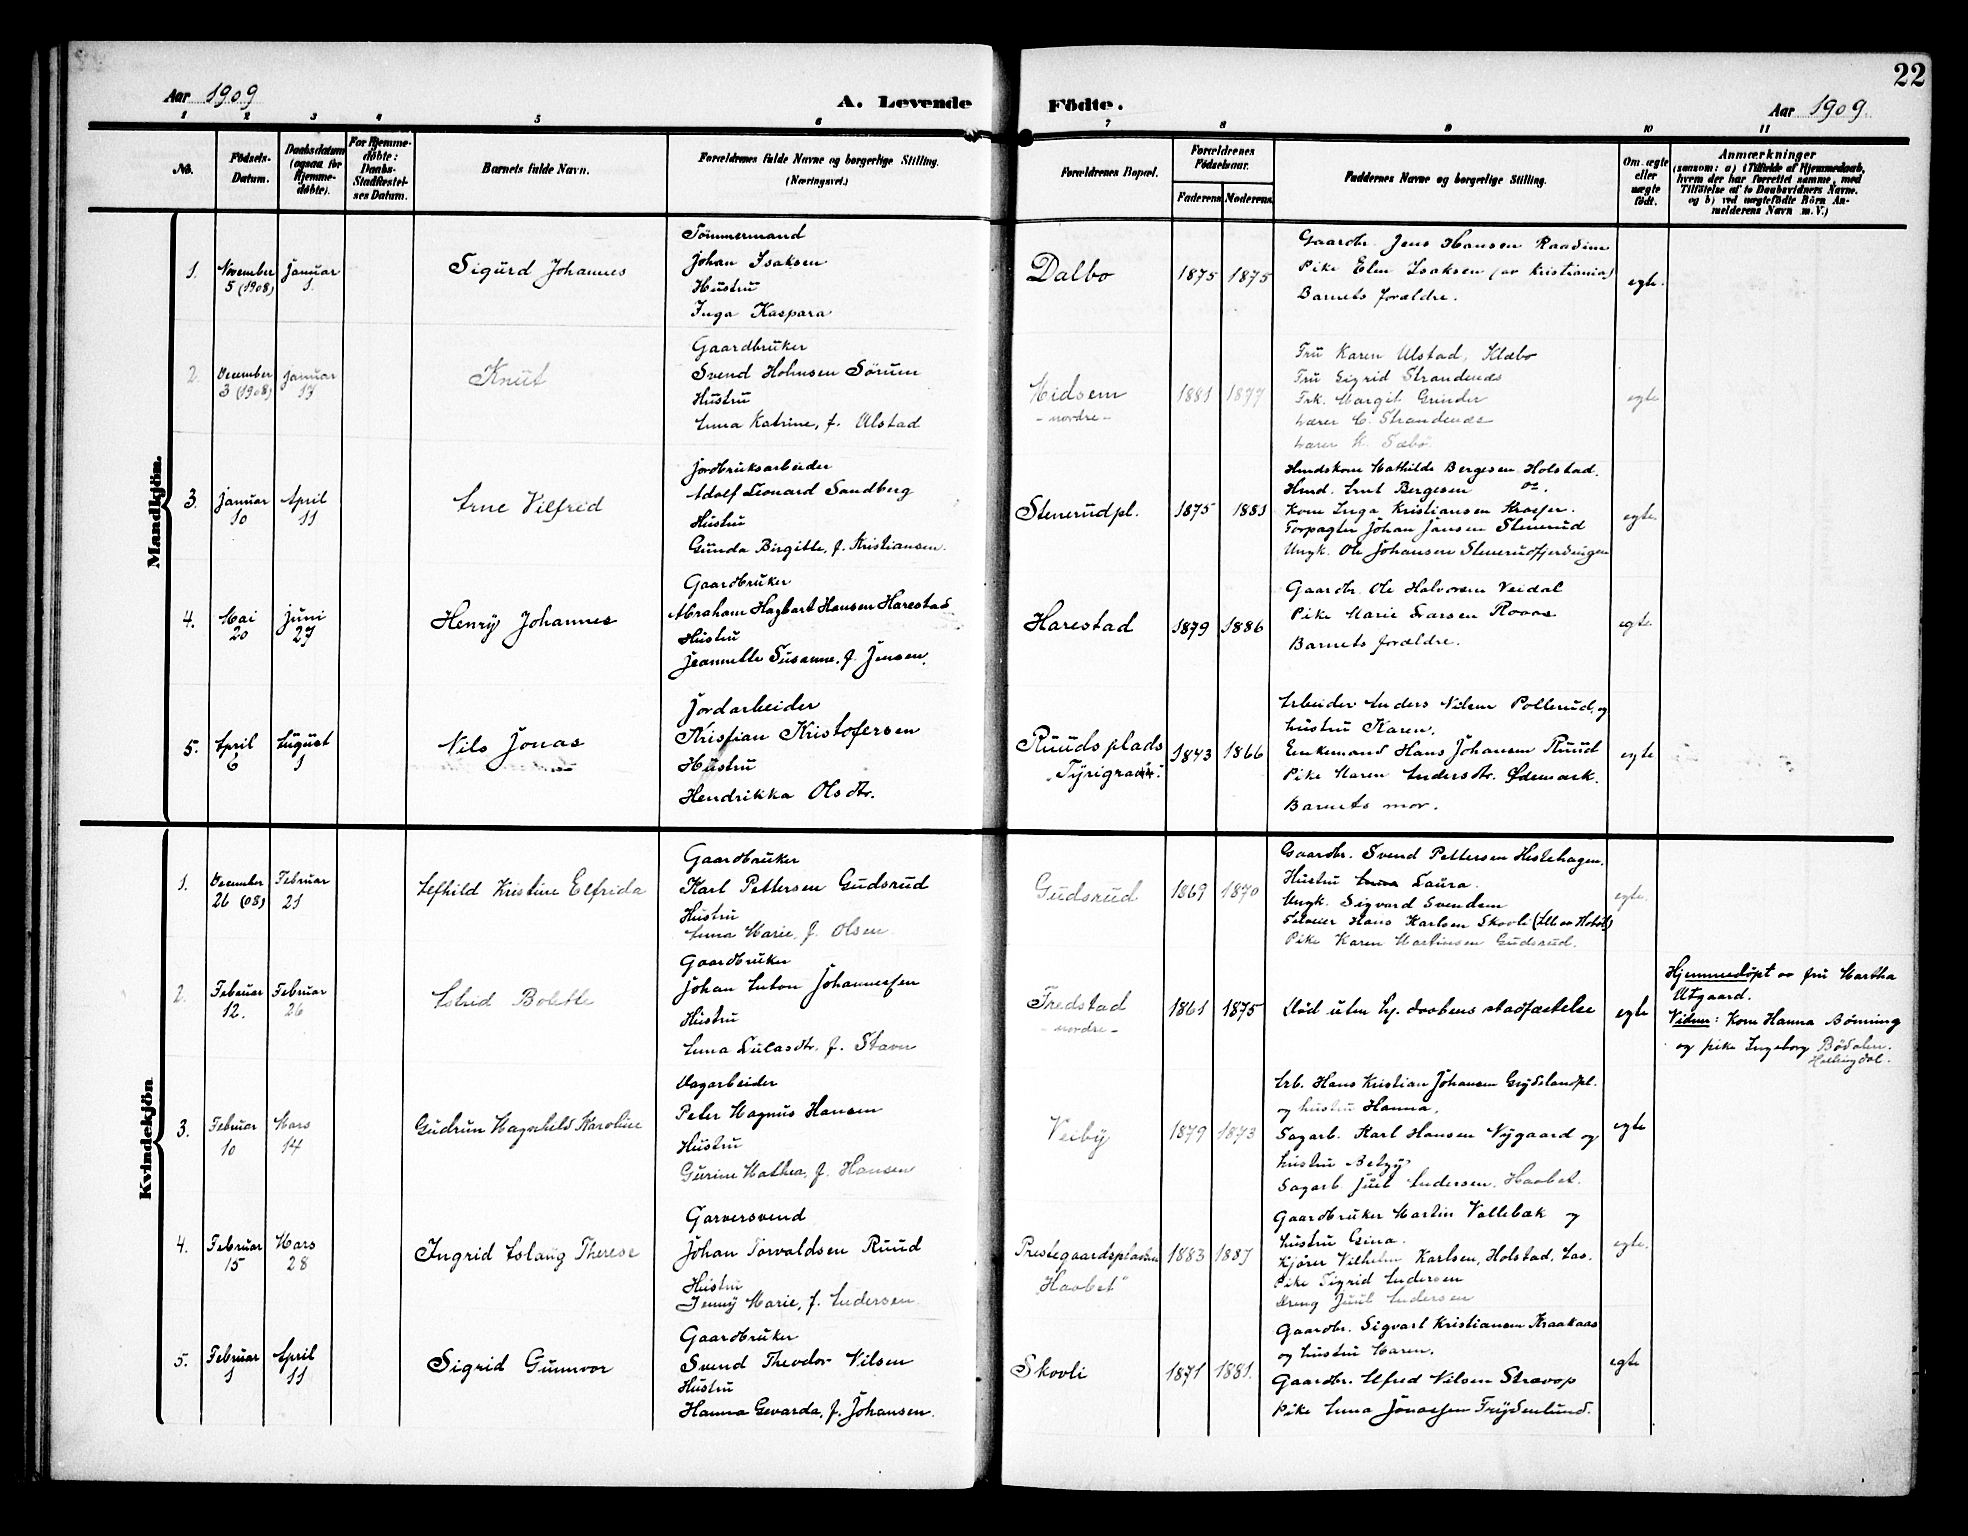 22
Aar 1909
A. Levende Födte.
Aar 1909.
1 2 3 4 5 6 7 8 9 10 11
No.
Födsels-Datum.
Daabsdatum (ogsaa for Hjemme-döbte).
For Hjemme-döbte: Daabs-Stadfæstel-ses Datum.
Barnets fulde Navn.
Forældrenes fulde Navne og borgerlige Stilling.
(Næringsvei.)
Forældrenes Bopæl.
Forældrenes Födselsaar.
Faderens Moderens
Faddernes Navne og borgerlige Stilling.
Om ægte eller uægte födt.
Anmærkninger
(saasom: a) i Tilfælde af Hjemmedaab,
hvem der har forrettet samme, med
Tilföielse af to Daabsvidners Navne.
og b) ved uægtefödte Börn An-
melderens Navn m. V.)
Mandkjön.
1.
November
5 (1908)
Januar
1.
Sigurd Johannes
Tömmermand
Johan Isaksen
Hustru
Inga Kaspara
Dalbo
1875
1875
Gaardbr. Jens Hansen Raadim
Pike Elen Isaksen (av Kristiania)
Barnets forældre.
egte.
2.
December
3 (1908)
Januar
17
Knut
Gaardbruker
Svend Holmsen Sörum
Hustru
Anna Katrine, f. Ulstad
Midsem
- nordre -
1881
1877
Fru Karen Ulstad, Klæbo
Fru Sigrid Strandenæs
Frk. Margit Grinder
Lærer C. Strandenæs
Lærer K. Sæbö.
egte
3.
Januar
10
April
11
Arne Vilfred
Jordbruksarbeider
Adolf Leonard Sandberg
Hustru
Gunda Birgitte, f. Kristiansen.
Stenerudpl.
1875
1881
Hmdskone Mathilde Bergesen Holstad.
Hmd. Arnt Bergesen do.
Kone Inga Kristiansen
Forpagter Johan Jansen Stenerud
Ungk. Ole Johansen Stenerudfjerdingen
egte.
4.
Mai
20
Juni
27
Henry Johannes
Gaardbruker
Abraham Hagbart Hansen Harestad
Hustru
Jeannette Susanne, f. Jensen.
Harestad
1879
1886
Gaardbr. Ole Halvorsen Veidal
Pike Marie Larsen Roaas
Barnets forældre.
egte.
5.
April
6
August
1
Nils Jonas
Jordarbeider
Kristian Kristofersen
Hustru
Hendrikka Olsdtr.
Ruudsplads
1843
1866
Arbeider Anders Nilsen Pollerud, og
hustru Karen.
Enkemand Hans Johansen Ruud
Pike Maren Andersdtr. Ödemark.
Barnets mor.
egte
Kvindekjön
1.
December
26 (08)
Februar
21
Alfhild Kristine Elfrida
Gaardbruker
Karl Pettersen Gudsrud
Hustru
Anna Marie, f. Olsen.
Gudsrud
1869
1870
Gaardbr. Svend Pettersen Hestehagen.
Hustru Laura.
Ungk. Sigvard Svendsen
Selveier Hans Karlsen Skovli
Pike Karen Martinsen Gudsrud.
egte.
2.
Februar
12.
Februar
26
Astrid Bolette
Gaardbruker
Johan Anton Johannessen
Hustru
Anna Lulasdtr. f. Stavn
Fredstad
- nordre -
1861
1875
Död uten hj. daabens stadfæstelse
egte
Hjemmedöpt av fru Martha
Utgaard.
Vidner: Kone Hanna Bönning
og pike Ingeborg Bödalen.
Hallingdal.
3.
Februar
10
Mars
14
Gudrun Magnhild Karoline
Dagarbeider
Peter Magnus Hansen
Hustru
Gurine Mathea, f. Hansen
Veiby
1879
1873
Arb. Hans Kristian Johansen
og hustru Hanna.
Sagarb. Karl Hansen Nygaard og
hustru Betzy
Sagarb Juul Andersen, Haabet.
egte
4.
Februar
15
Mars
28
Ingrid Aslaug Therese
Garversvend
Johan Torvaldsen Ruud
Hustru
Jenny Marie, f. Andersen.
Prestegaardspladsen
"Haabet"
1883
1887
Gaardbruker Martin Vallebæk og
hustru Gina.
Kjörer Vilhelm Karlsen, Holstad, Aas.
Pike Sigrid Andersen
Dreng Juul Andersen
egte.
5.
Februar
1
April
11
Sigrid Gunnvor
Gaardbruker
Svend Theodor Nilsen
Hustru
Hanna Gevarda, f. Johansen.
Skovli
1871
1881.
Gaardbr. Sigvart Kristiansen Kraakaas
og hustru Maren.
Gaardbr. Alfred Nilsen Stravop
Pike Anna Jonassen Frydenlund.
egte